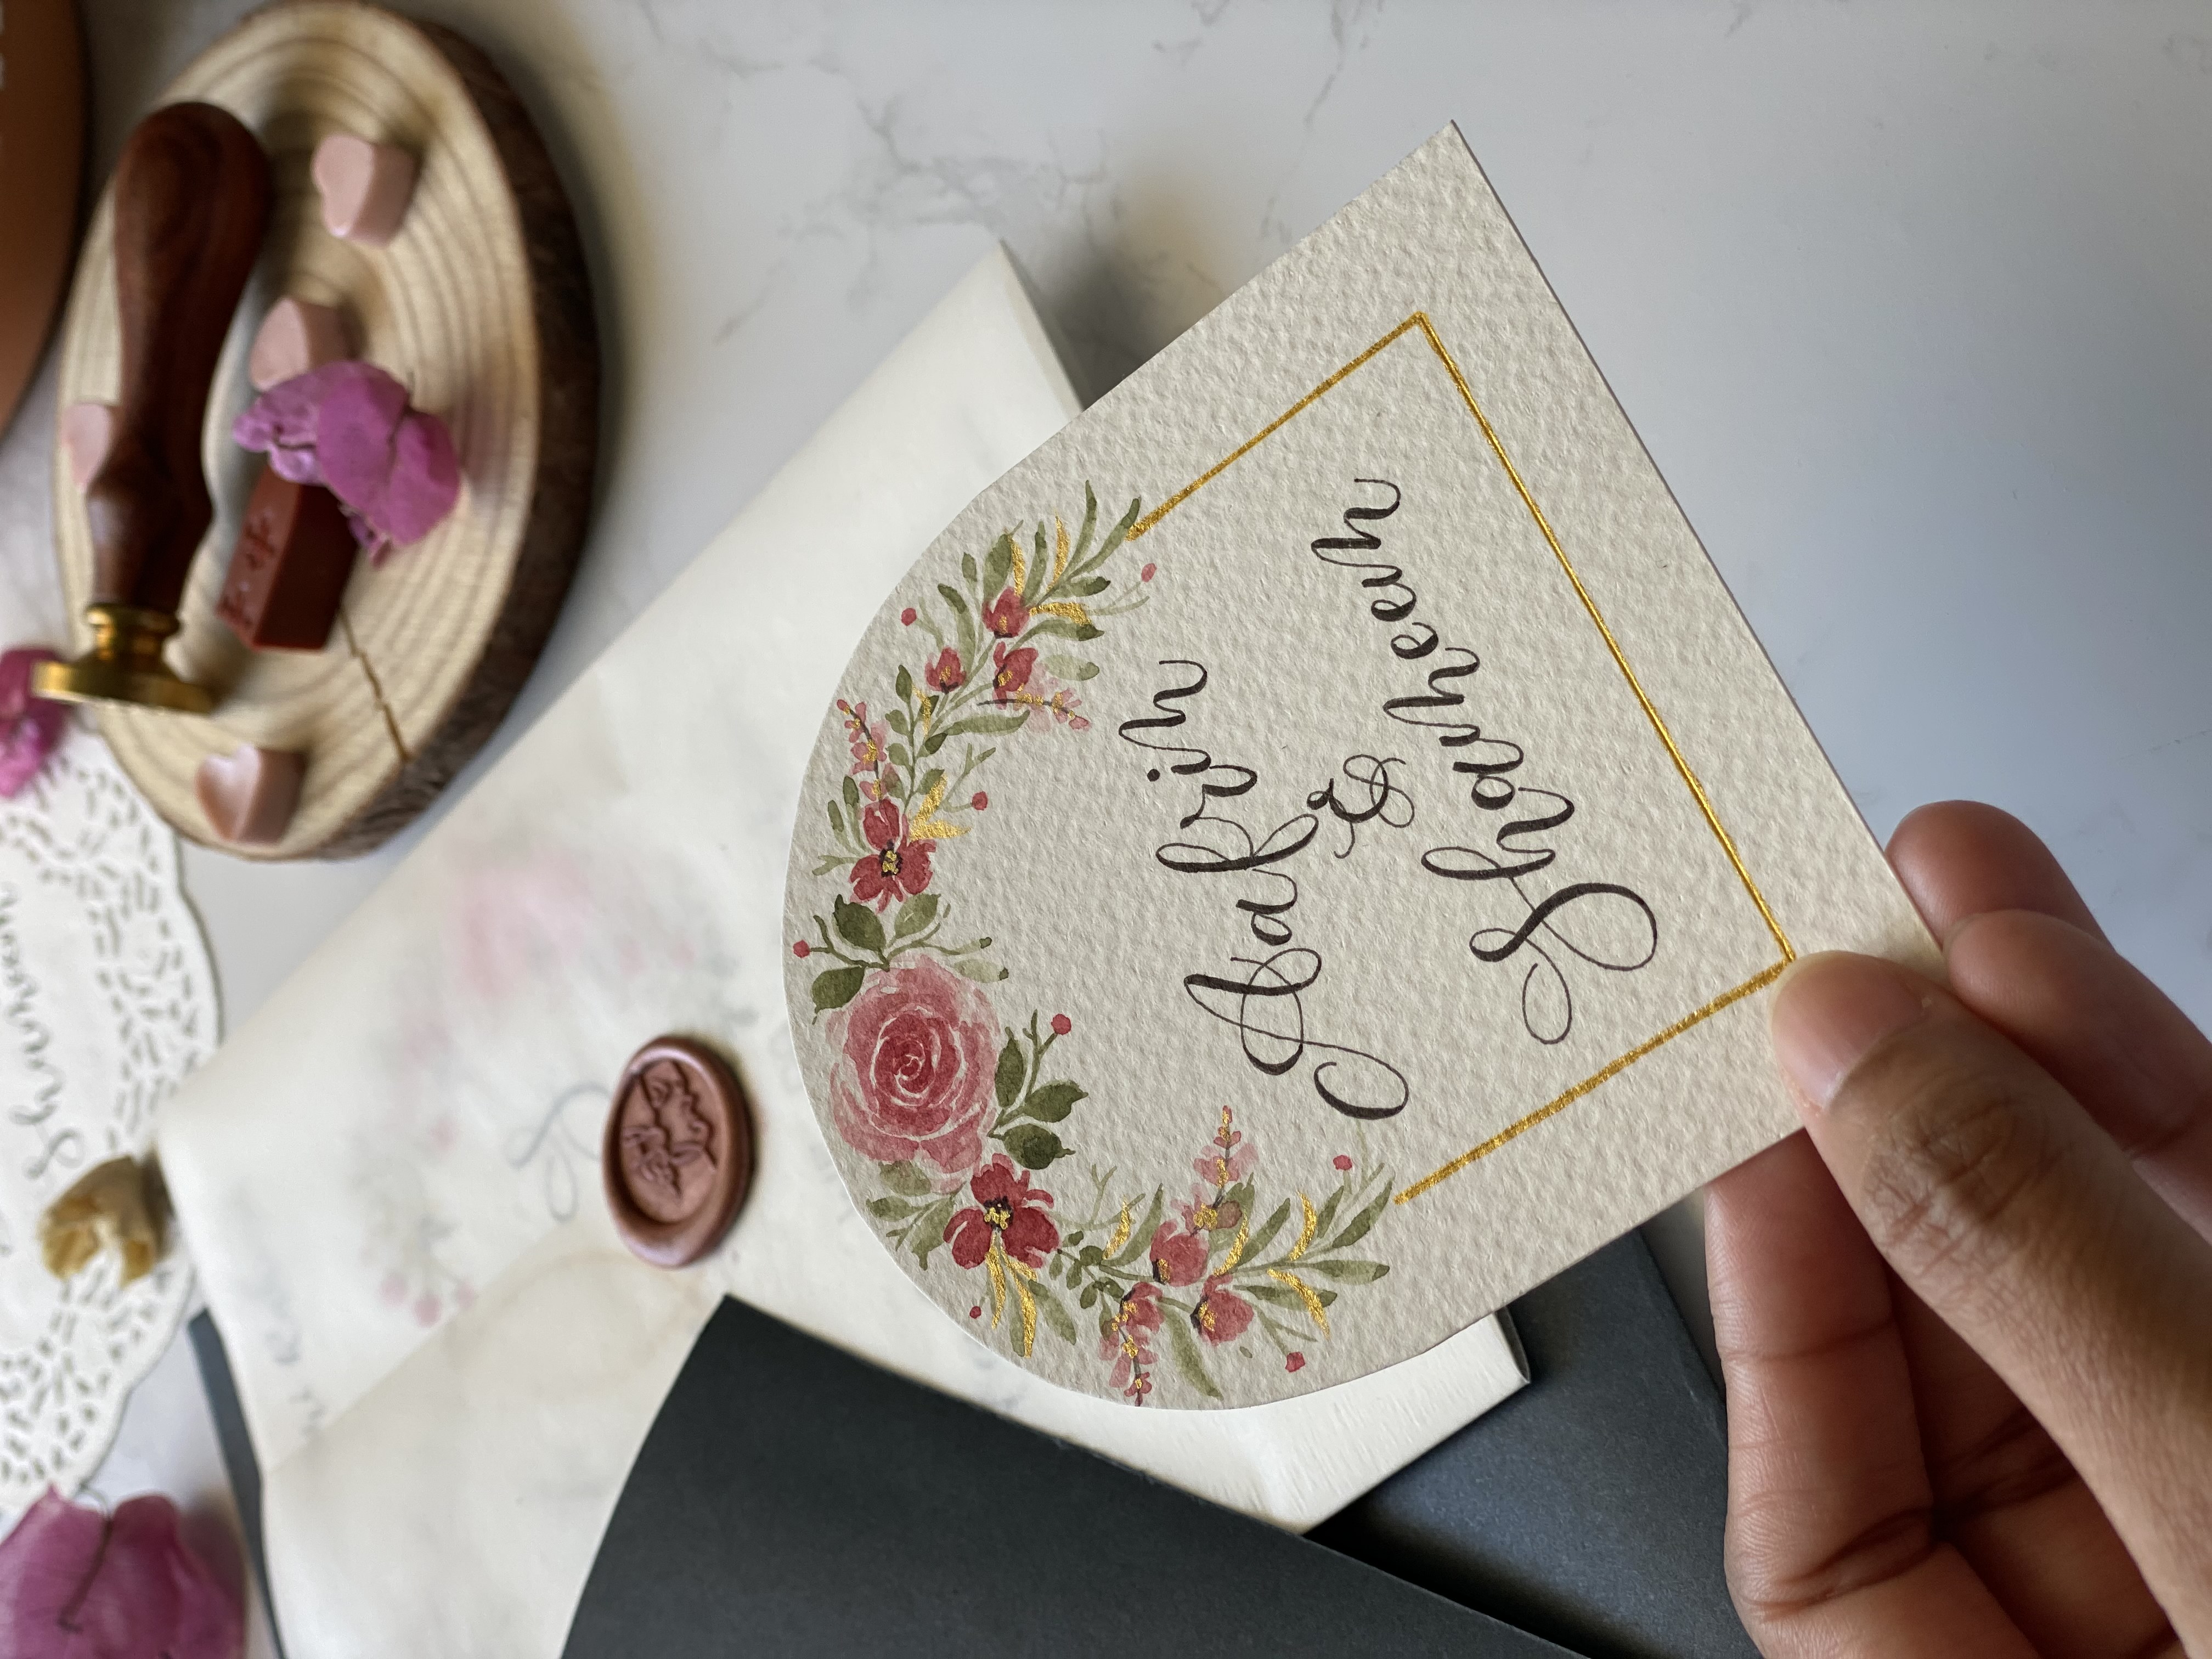 Shameem
Love
Aafrin
&
Shameem